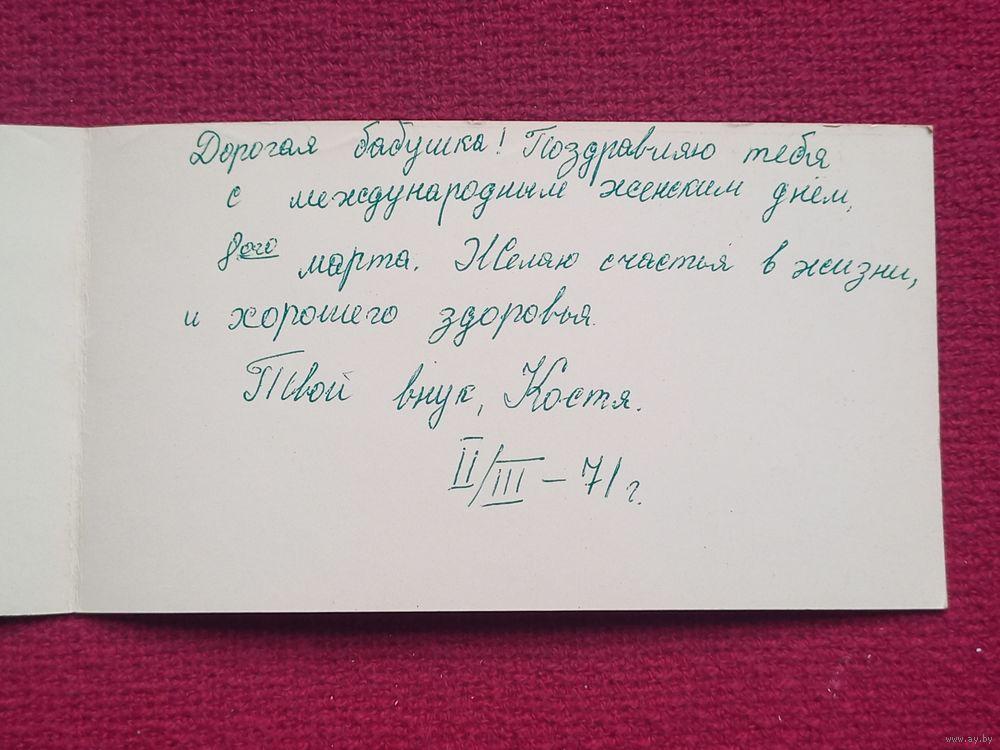 Дорогая бабушка! Поздравляю тебя
с международным женским днём,
8ого марта. Желаю счастья в жизни,
и хорошего здоровья.
Твой внук, Костя.
II/III – 71 г.
www.ay.by